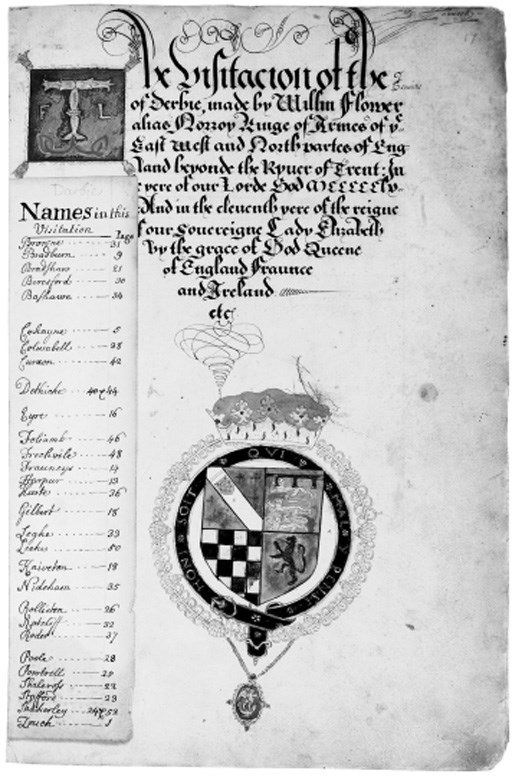 The Visitacion of the
of Derbie, made by Willm Flower
alias Norroy Kinge of Armes of ye
East West and North partes of Eng
land beyonde the Ryver of Trent: In
yere of our Lorde God
And in the eleventh yere of the reigne
our Sovereigne Lady Elizabeth
by the grace of God Queene
of England Fraunce
and Ireland
etc
T
F L
Names in this
Visitation Page
Browne 31
Bradburn 9
Bradshaw 21
Beresford 30
Bashawe 34
Cokayne 5
Columbell 38
Curzon 42
Dethicke 40 & 44
Eyre 16
Foliamb 46
Frechvile 48
Frauncys 14
Harpur 13
Hurte 36
Gilbert 18
Leghe 33
Leeke 50
Kniveton 18
Nideham 35
Rolliston 26
Ratcliff 32
Rodes 37
Poole 28
Powtrell 29
Shalcross 22
Stafford 23
Zouch 1
HONI SOIT QVI MAL Y PENSE